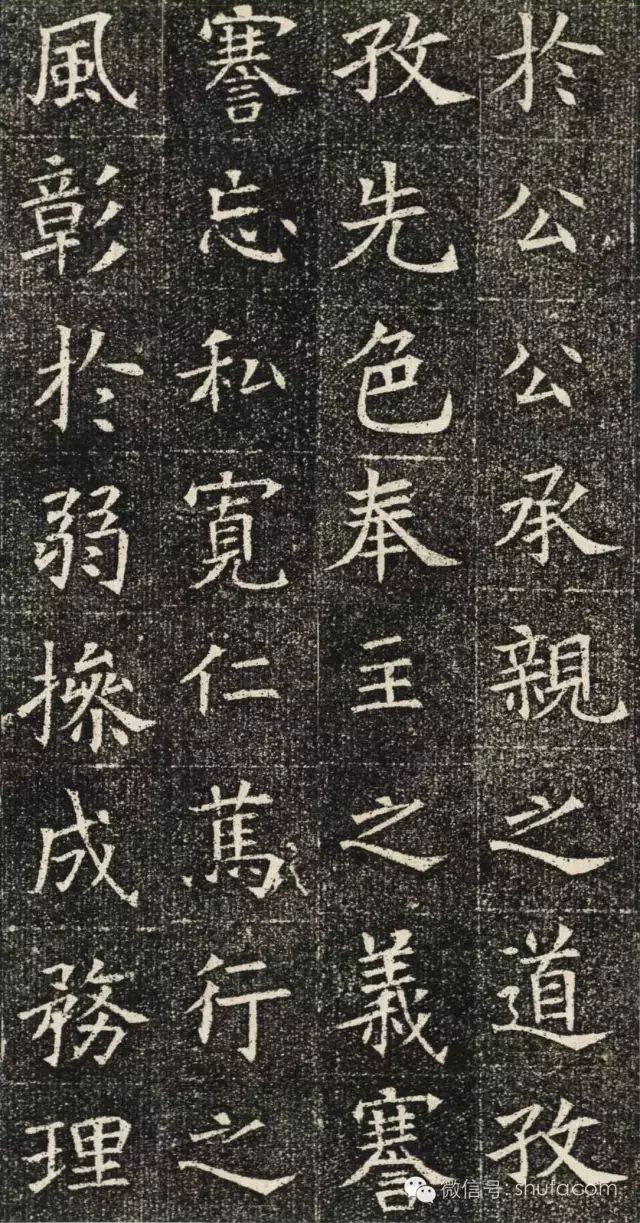 於公公承親之道孜
孜先色奉主之義謇
謇忘私寬仁篤行之
風彰於弱操成務理
微信号: shufacom